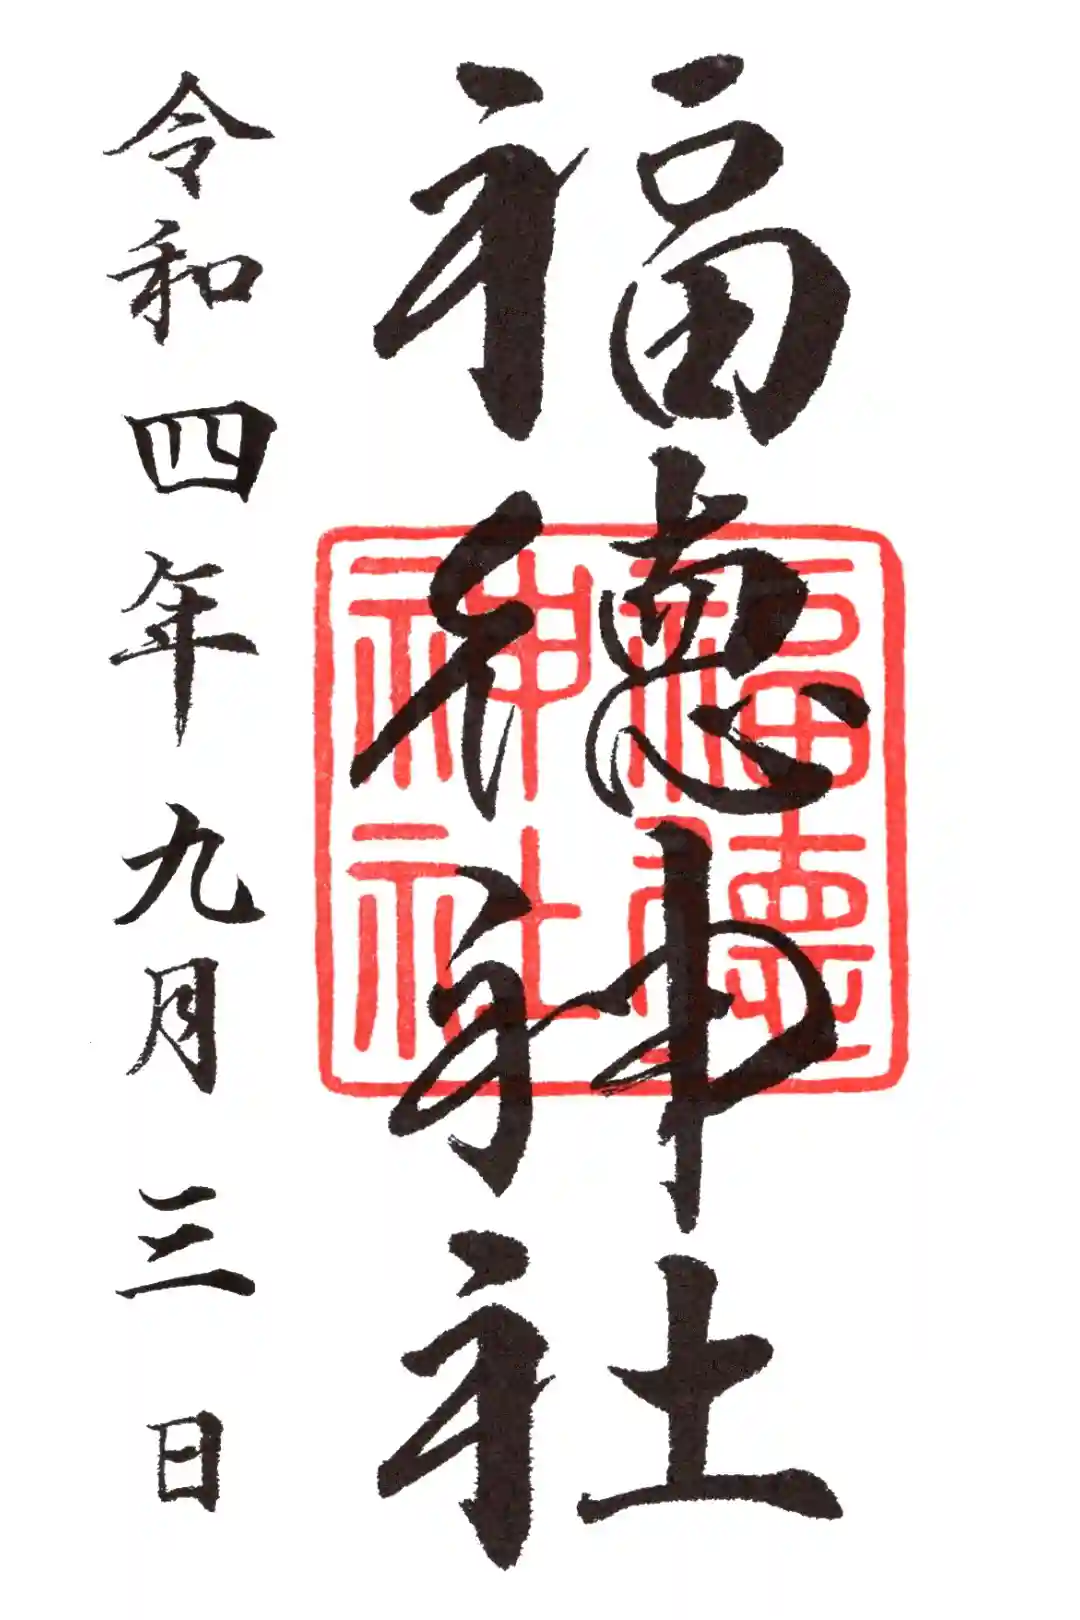 福徳神社
福徳神社
令和四年九月三日